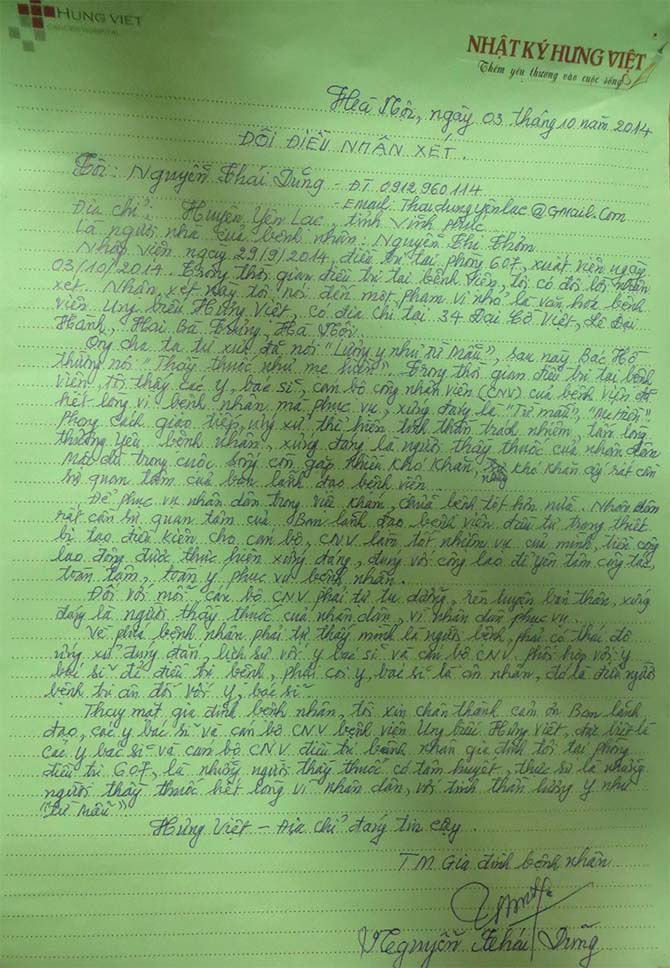 HUNG VIET
CANCER HOSPITAL
NHẬT KÝ HƯNG VIỆT
Thêm yêu thương vào cuộc sống
Hà Nội, ngày 03 tháng 10 năm 2014
ĐÔI ĐIỀU NHẬN XÉT.
Tôi: Nguyễn Thái Dũng - ĐT 0912.960.114
- Email: Thaidungyenlac@Gmail.Com
Địa chỉ: Huyện Yên Lạc, tỉnh Vĩnh Phúc
Là người nhà của bệnh nhân: Nguyễn Thị Thơm
Nhập viện ngày 29/9/2014, điều trị tại phòng 607, xuất viện ngày
03/10/2014. Trong thời gian điều trị tại bệnh viện, tôi có đôi lời nhận
xét. Nhận xét này tôi nói đến một phạm vi nhỏ là văn hoá bệnh
viện Ung bướu Hưng Việt, có địa chỉ tại 34 Đại Cồ Việt, Lê Đại
Hành, Hai Bà Trưng, Hà Nội.
Ông cha ta từ xưa đã nói "Lương y như từ mẫu", sau này Bác Hồ
thường nói "Thầy thuốc như mẹ hiền". Trong thời gian điều trị tại bệnh
viện, tôi thấy các y, bác sĩ, cán bộ công nhân viên (CNV) của bệnh viện đã
hết lòng vì bệnh nhân mà phục vụ, xứng đáng là "Từ mẫu", "Mẹ hiền"
phong cách giao tiếp, ứng xử thể hiện tinh thần trách nhiệm, tấm lòng
thương yêu bệnh nhân, xứng đáng là người thầy thuốc của nhân dân
Mặc dù trong cuộc sống còn gặp nhiều khó khăn, khó khăn ấy rất cần
sự quan tâm của ban lãnh đạo bệnh viện.
Để phục vụ nhân dân trong việc khám, chữa bệnh tốt hơn nữa. Nhân dân
rất cần sự quan tâm của Ban lãnh đạo bệnh viện đầu tư trang thiết
bị tạo điều kiện cho cán bộ, CNV làm tốt nhiệm vụ của mình, tiền công
lao động được thực hiện xứng đáng, đúng với công lao để yên tâm công tác,
toàn tâm, toàn ý phục vụ bệnh nhân.
Đối với mỗi cán bộ CNV phải tự tu dưỡng, rèn luyện bản thân, xứng
đáng là người thầy thuốc của nhân dân, vì nhân dân phục vụ.
Về phía bệnh nhân phải tự thấy mình là người bệnh, phải có thái độ
ứng xử đúng đắn, lịch sự với y bác sĩ và cán bộ CNV phối hợp với y
bác sĩ để điều trị bệnh, phải coi y, bác sĩ là ân nhân, đó là điều người
bệnh tri ân đối với y, bác sĩ.
Thay mặt gia đình bệnh nhân, tôi xin chân thành cảm ơn Ban lãnh
đạo, các y bác sĩ và cán bộ CNV bệnh viện Ung bướu Hưng Việt, đặc biệt là
các y bác sĩ và cán bộ CNV điều trị bệnh nhân gia đình tôi tại phòng
điều trị 607, là những người thầy thuốc có tâm huyết, thực sự là những
người thầy thuốc hết lòng vì nhân dân, với tinh thần lương y như
"Từ mẫu".
Hưng Việt - Địa chỉ đáng tin cậy.
T.M Gia đình bệnh nhân
Nguyễn Thái Dũng